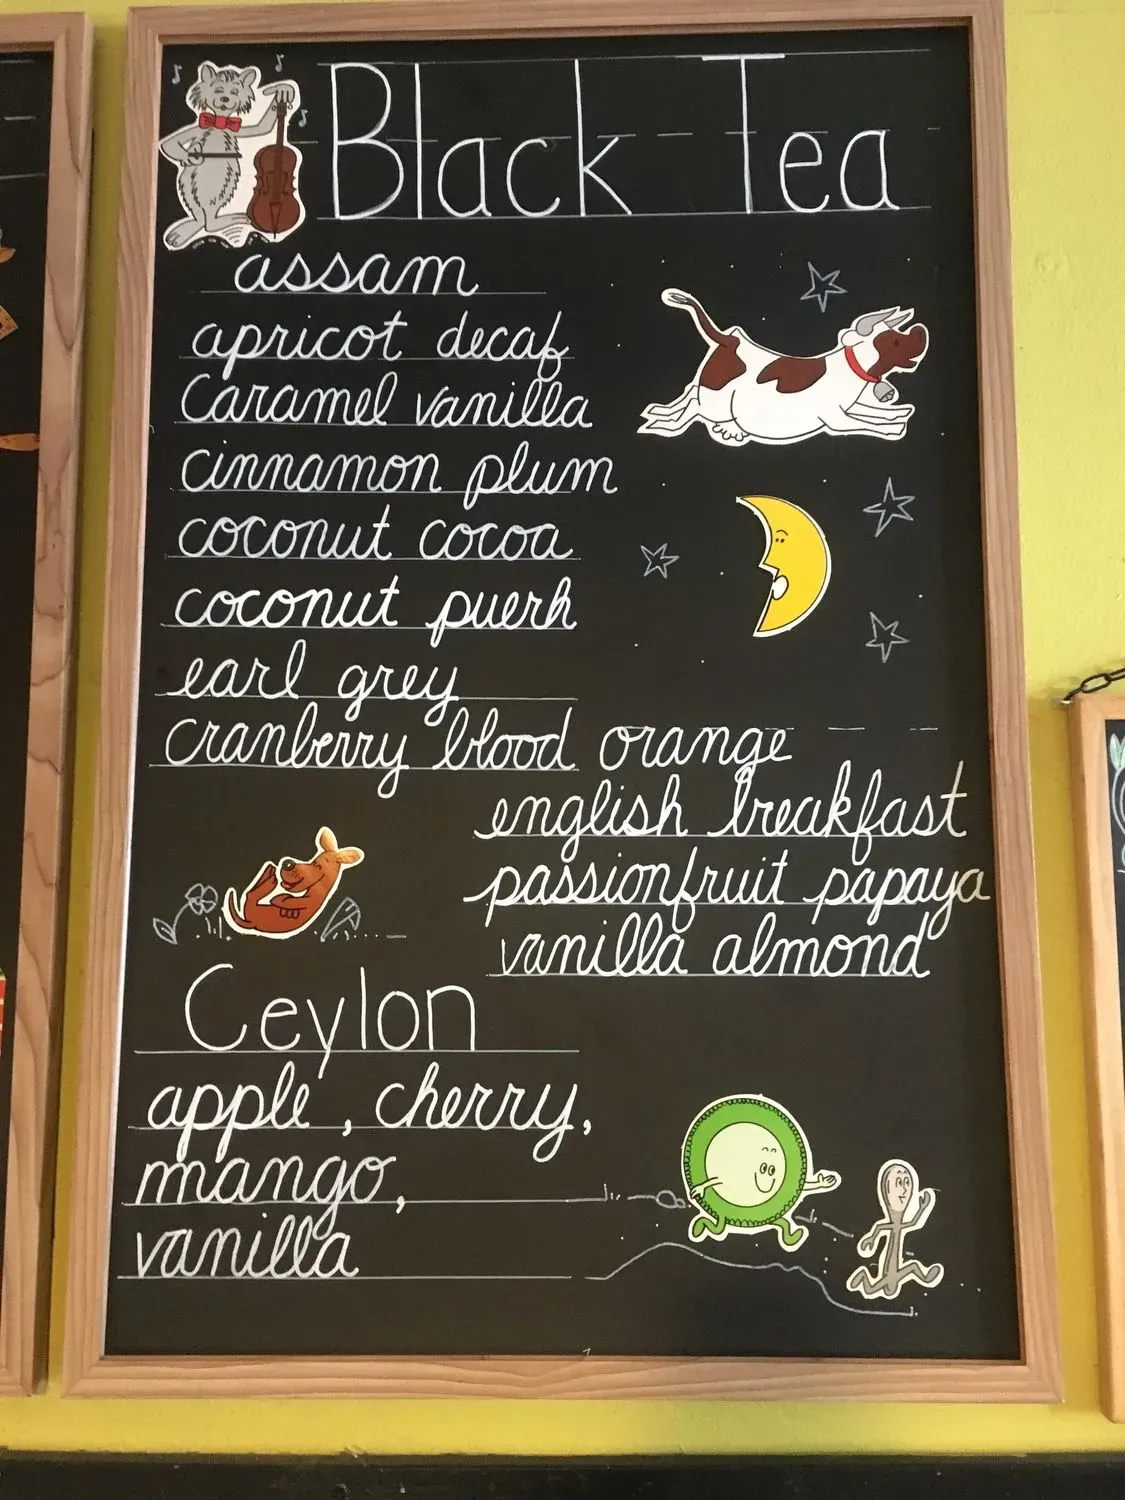 Black Tea
assam
apricot decaf
Caramel vanilla
cinnamon plum
coconut cocoa
coconut puerh
earl grey
cranberry blood orange
english breakfast
passionfruit papaya
vanilla almond
Ceylon
apple, cherry,
mango,
vanilla